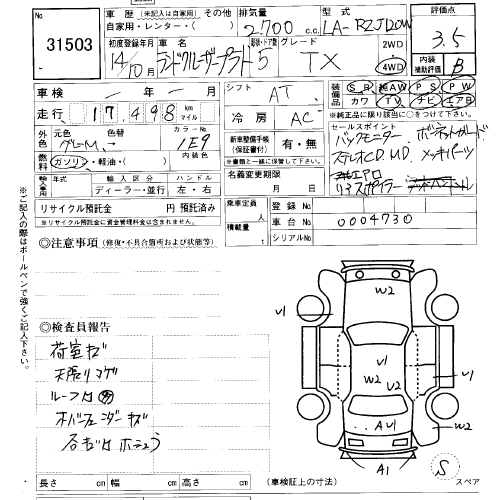 No. 31503
車歴 (未記入は自家用) その他
自家用・レンター・( )
排気量 2,700 c.c.
型式 LA-RZJ120W
評価点 3.5
初度登録年月 14年10月
車名 ランドクルーザープラド
ドア数 5
グレード TX
2WD
4WD
内装補助評価 B
車検 ー 年 ー 月
シフト AT
装備品 SR 純AW PS PW
カワ TV ナビ エアB
※純正品に限り該当に○をつけて下さい。
走行 17,498 km マイル
冷房 AC
セールスポイント
バックモニター ボンネットガード
ステレオCD,MD メッキパーツ
エアロ
リアスポイラー
外色 元色 グレーM
色替
カラーNo. 1E9
新車整備手帳(保証書付) 有・無
※書類と一緒に保管して下さい。
燃料 ガソリン・軽油・( )
名義変更期限 月 日
輸入車 年式
輸入区分 ディーラー・並行
ハンドル 左・右
リサイクル預託金 円 預託済み
※リサイクル預託金に資金管理料金は含まれません。
乗車定員 人
積載量 kg
登録No.
車台No. 0004730
シリアルNo.
◎注意事項 (修復・不具合箇所および状態等)
※ご記入の際はボールペンで強くご記入下さい。
W2
V1
V1
W2
V2
V1
A V1
W2
A1
S
スペア
◎検査員報告
荷室キズ
天張りマゲ
ルーフ内
オバーフェンダーキズ
各キズ凹ホシュウ
長さ cm 幅 cm 高さ cm (車検証上の寸法)